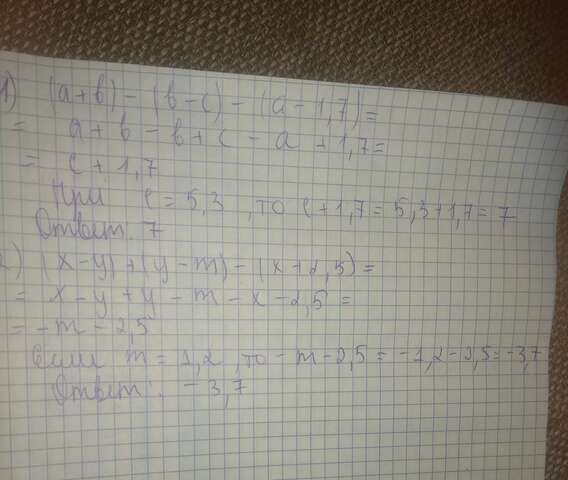 1) (a+b) - (b-c) - (a-1,7) =
= a+b-b+c-a+1,7=
= c+1,7
При c=5,3, то c+1,7=5,3+1,7=7
Ответ. 7
2) (x-y)+(y-m)-(x+2,5)=
= x-y+y-m-x-2,5=
= -m-2,5
Если m=1,2, то -m-2,5=-1,2-2,5=-3,7
Ответ: -3,7